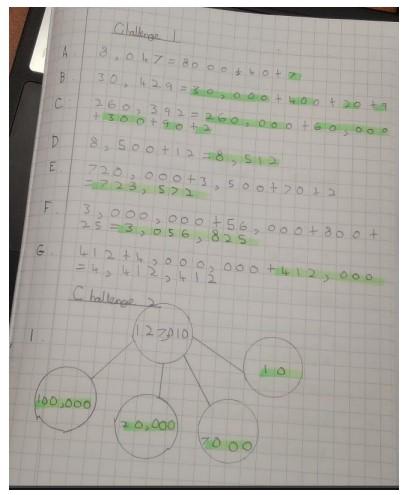 Challenge 1
A. 8,047 = 8000 + 40 + 7
B 30,429 = 30,000 + 400 + 20 + 9
C. 260,392 = 260,000 + 60,000
+ 300 + 90 + 2
D 8,500 + 12 = 8,512
E. 720,000 + 3,500 + 70 + 2
= 723,572
F. 3,000,000 + 56,000 + 800 +
25 = 3,056,825
G. 412 + 4,000,000 + 412,000
= 4,412,412
Challenge 2
1.
127,010
10
100,000
20,000
7000